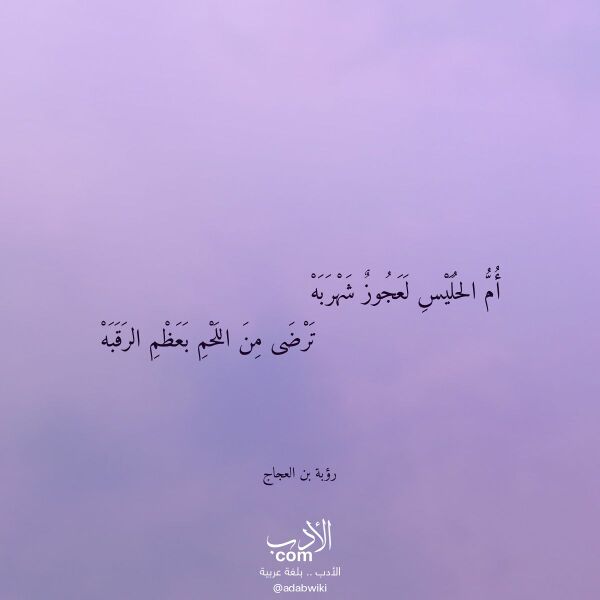 أُمُّ الحُلَيْسِ لَعَجُوزٌ شَهْرَبَهْ
تَرْضَى مِنَ اللَحْمِ بَعَظْمِ الرَقَبَهْ
رؤبة بن العجاج
الأدب
com
الأدب .. بلغة عربية
@adabwiki